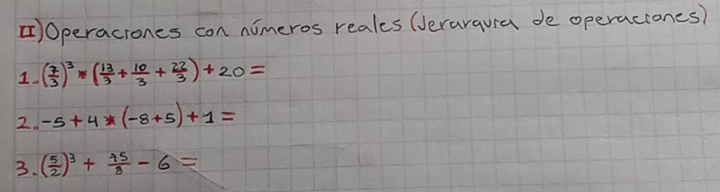 II) Operaciones con números reales (Jerarquía de operaciones)
1.- (7/3)³ * (13/3 + 10/3 + 22/3) + 20 =
2.- -5 + 4 * (-8+5) + 1 =
3. (5/2)³ + 75/8 - 6 =